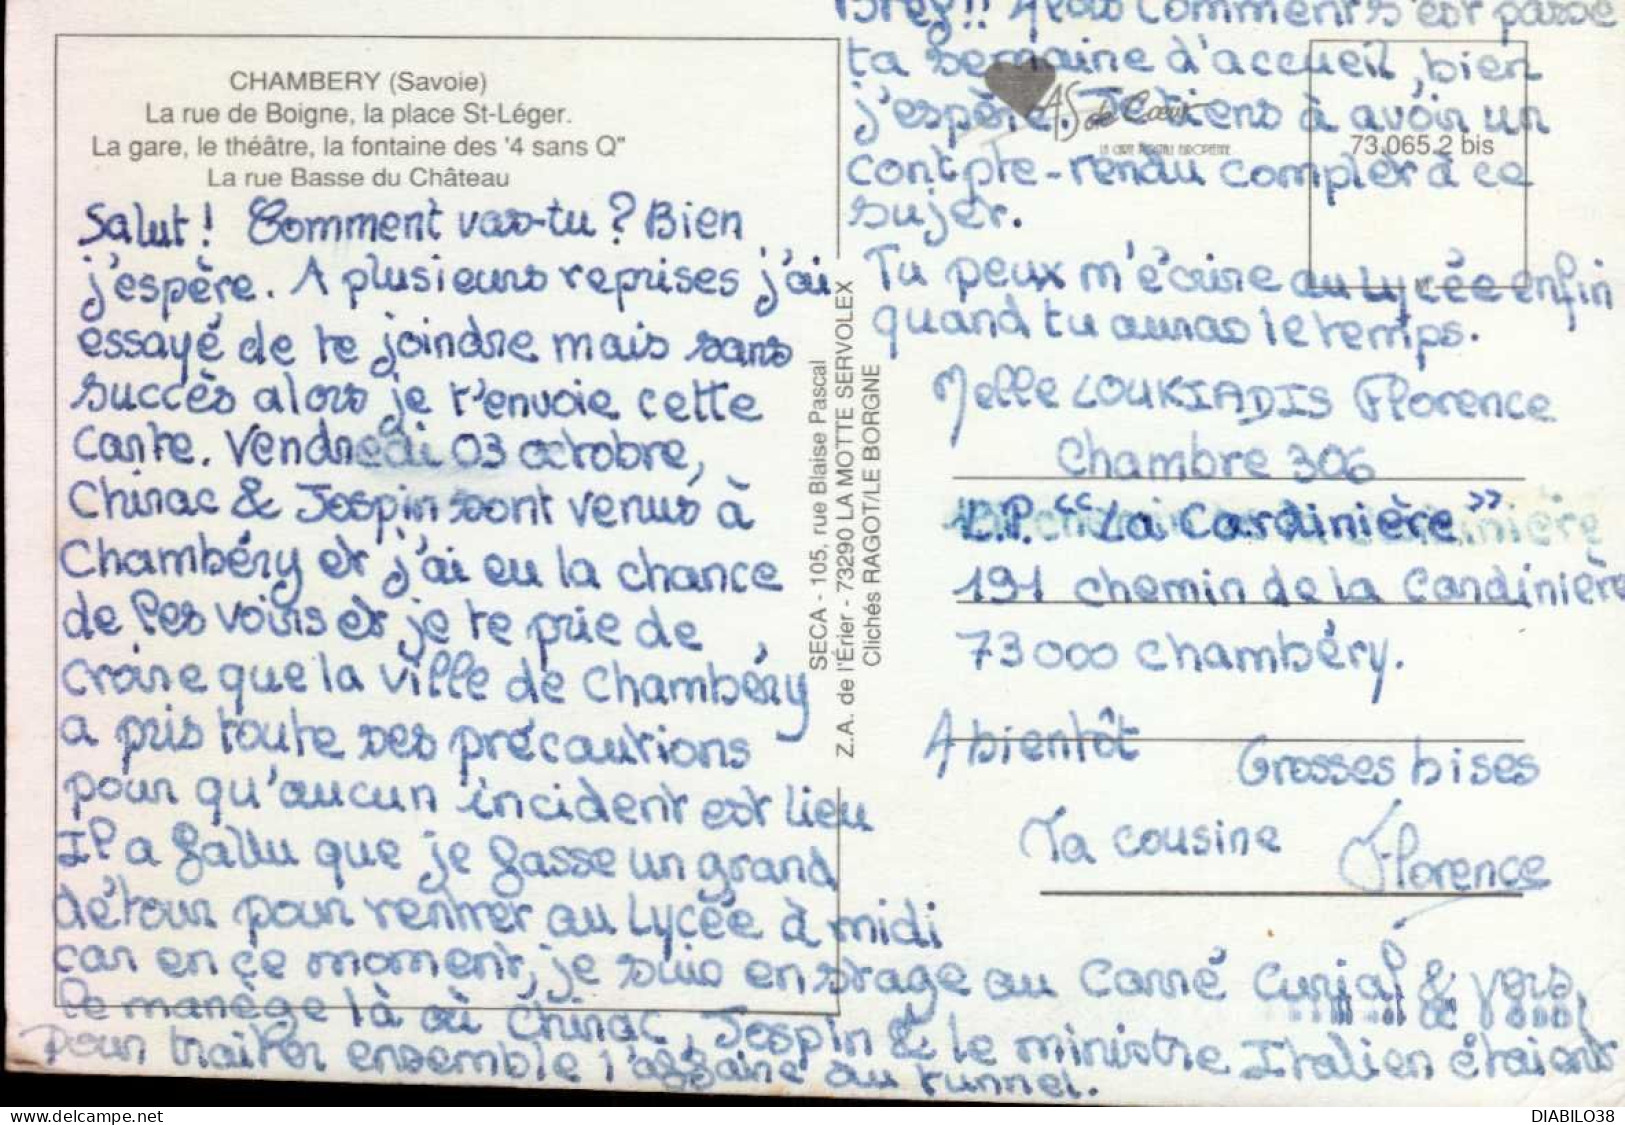 CHAMBERY (Savoie)
La rue de Boigne, la place St-Léger.
La gare, le théâtre, la fontaine des '4 sans Q"
La rue Basse du Château
Salut! Comment vas-tu? Bien
j'espère. A plusieurs reprises j'ai
essayé de te joindre mais sans
succès alors je t'envoie cette
carte. Vendredi 03 octobre,
Chirac & Jospin sont venus à
Chambéry et j'ai eu la chance
de les voirs et je te prie de
croire que la ville de Chambéry
a pris toute ses précautions
pour qu'aucun incident est lieu
Il a fallu que je fasse un grand
détour pour rentrer au Lycée à midi
car en ce moment, je suis en stage au Carré Curial & vers
le manège là où Chirac, Jospin & le ministre Italien étaient
pour traiter ensemble l'affaire au tunnel.
SECA - 105, rue Blaise Pascal
Z.A. de l'Érier - 73290 LA MOTTE SERVOLEX
Clichés RAGOT/LE BORGNE
Bref!! Alors comment s'est passé
ta semaine d'accueil, bien
j'espère. Je tiens à avoir un
contpte-rendu complet à ce
sujet.
AS de Cœur
LA CARTE POSTALE EUROPÉENNE
73.065.2 bis
Tu peux m'écrire au Lycée enfin
quand tu auras le temps.
Melle LOUKIADIS Florence
Chambre 306
L.P. "La Cardinière"
191 chemin de la Cardinière
73000 Chambéry.
A bientôt
Grosses bises
Ta cousine
Florence
DIABILO38